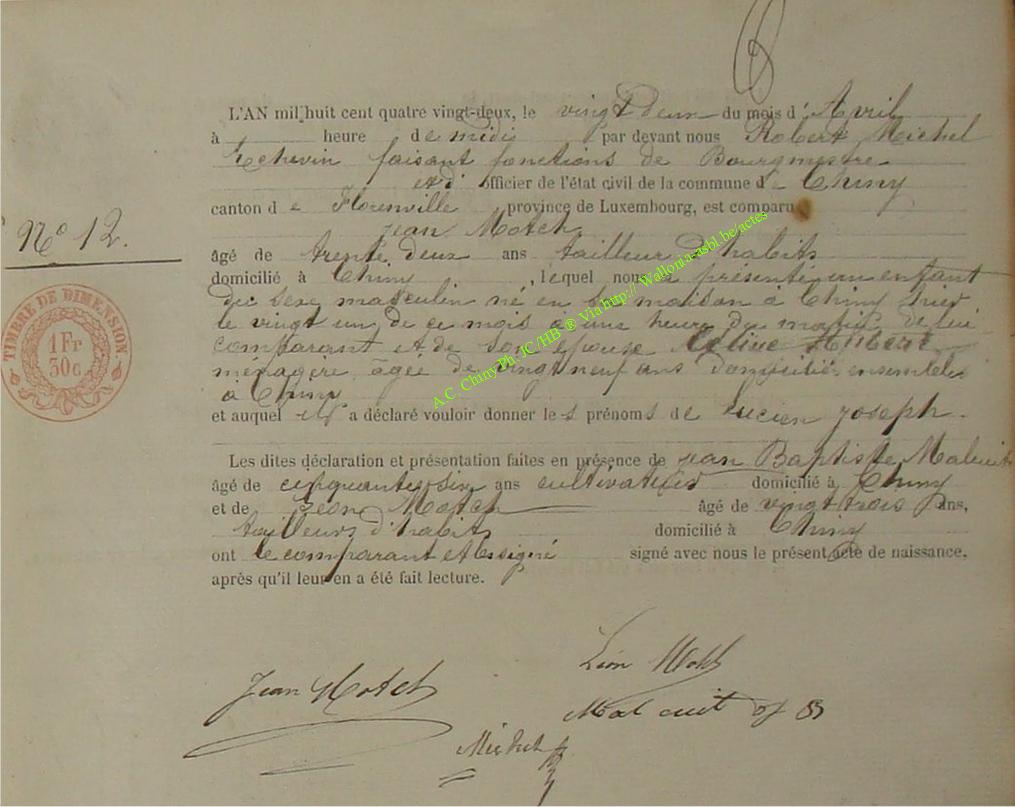 L'AN mil huit cent quatre vingt-deux, le vingt deux du mois d'Avril
à heure de midi par devant nous Robert Michel
Echevin faisant fonctions de Bourgmestre
et d'officier de l'état civil de la commune de Chiny
canton de Florenville, province de Luxembourg, est comparu
Jean Motch
N° 12.
âgé de trente deux ans tailleur d'habits
domicilié à Chiny, lequel nous a présenté un enfant
du sexe masculin né en sa maison à Chiny hier
le vingt un de ce mois à une heure du matin, de lui
comparant et de son épouse Hubert
ménagère âgée de vingt neuf ans domiciliés ensemble
à Chiny
et auquel il a déclaré vouloir donner les prénoms de Lucien Joseph.
Les dites déclaration et présentation faites en présence de Jean Baptiste
âgé de cinquante six ans cultivateur domicilié à Chiny
et de Léon Motch âgé de vingt trois ans,
tailleur d'habits domicilié à Chiny
ont le comparant et signé signé avec nous le présent acte de naissance,
après qu'il leur en a été fait lecture.
Léon Motch
Jean Motch
Malcuit
Michel
TIMBRE DE DIMENSION
1 Fr
30 c.
A.C. Chiny Ph. JC/HB ® Via http://Wallonia-asbl.be/actes